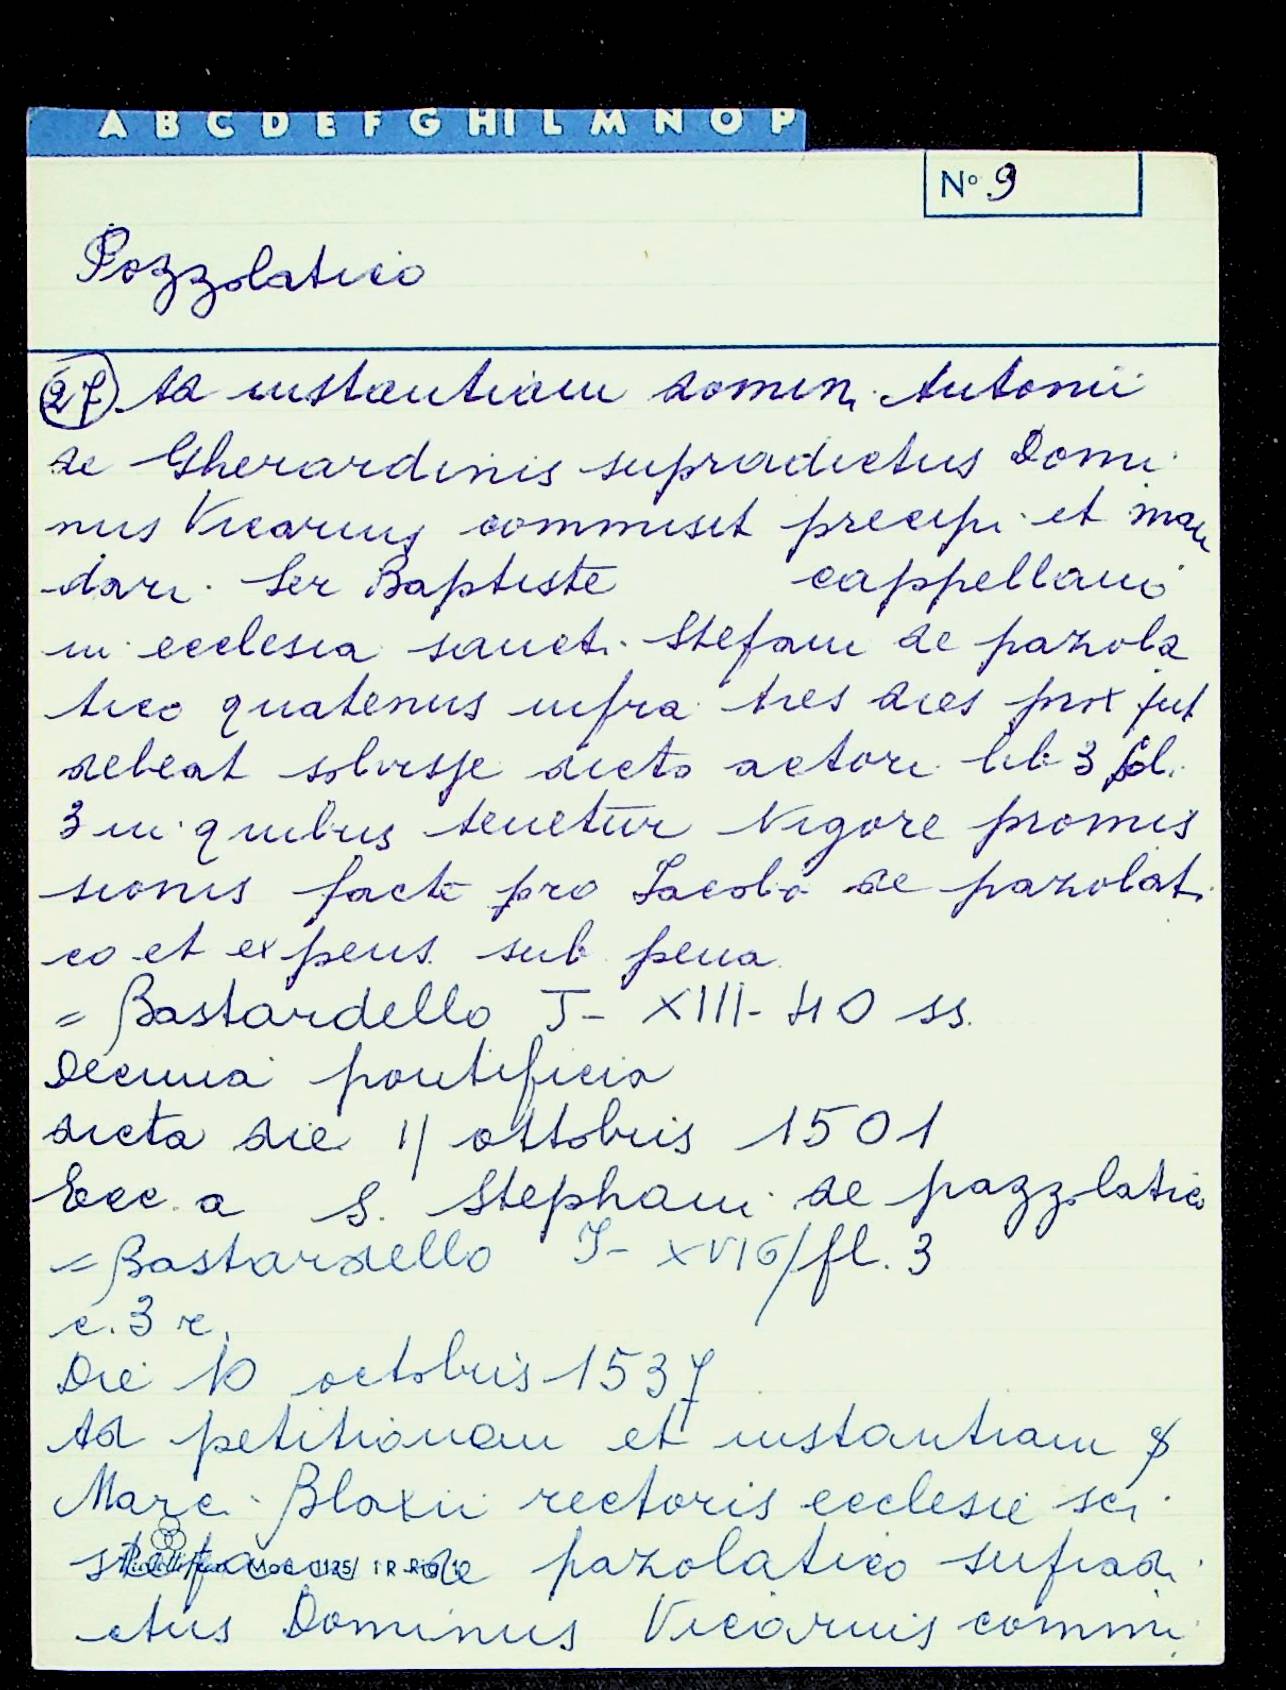 A B C D E F G HI L M N O P
N° 9
Pozzolatico
27) Ad instantiam domin. Antonii
de Gherardinis supradictus Domi
nus Vicarius commisit precipi et man
dari Ser Baptiste cappellano
in ecclesia sancti Stefani de pazola
tico quatenus infra tres dies prox fut
debeat solvisse dicto actori lib 3 sol.
3 in quibus tenetur Vigore promis
sionis facte pro Jacobo de pazolat
co et expens. sub pena
= Bastardello I- XIII- 40 ss.
Decima pontificia
dicta die 11 ottobris 1501
Ecc.a S. Stephani de pazzolatico
= Bastardello I- XVI6/fl. 3
c. 3 r.
Die 10 octobris 1537
Ad petitionam et instantiam
Marci Blaxii rectoris ecclesie sci
stefani de pazolatico suprad
ctus Dominus Vicarius commi